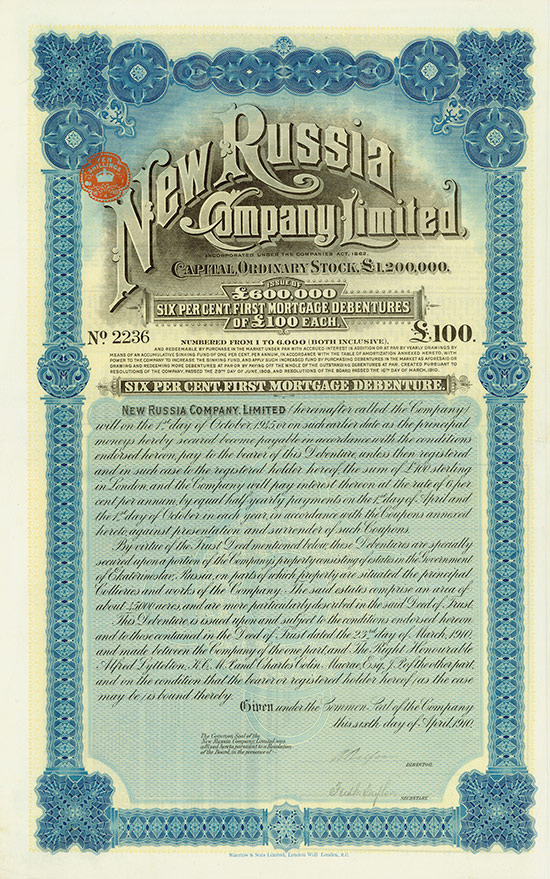 TEN
SHILLINGS
New Russia
Company, Limited,
INCORPORATED UNDER THE COMPANIES ACT, 1862.
CAPITAL, ORDINARY STOCK, £1,200,000.
ISSUE OF
£600,000
SIX PER CENT. FIRST MORTGAGE DEBENTURES
OF £100 EACH.
No 2236
£100.
NUMBERED FROM 1 TO 6,000 (BOTH INCLUSIVE),
AND REDEEMABLE BY PURCHASE IN THE MARKET UNDER PAR WITH ACCRUED INTEREST IN ADDITION OR AT PAR BY YEARLY DRAWINGS BY
MEANS OF AN ACCUMULATIVE SINKING FUND OF ONE PER CENT. PER ANNUM, IN ACCORDANCE WITH THE TABLE OF AMORTIZATION ANNEXED HERETO, WITH
POWER TO THE COMPANY TO INCREASE THE SINKING FUND, AND APPLY SUCH INCREASED FUND BY PURCHASING DEBENTURES IN THE MARKET AS AFORESAID OR
DRAWING AND REDEEMING MORE DEBENTURES AT PAR OR BY PAYING OFF THE WHOLE OF THE OUTSTANDING DEBENTURES AT PAR. CREATED PURSUANT TO
RESOLUTIONS OF THE COMPANY, PASSED THE 29TH DAY OF JUNE, 1909, AND RESOLUTIONS OF THE BOARD PASSED THE 10TH DAY OF MARCH, 1910.
SIX PER CENT. FIRST MORTGAGE DEBENTURE.
NEW RUSSIA COMPANY, LIMITED (hereinafter called the Company)
will on the 1st day of October, 1945 or on such earlier date as the principal
moneys hereby secured become payable in accordance with the conditions
endorsed hereon, pay to the bearer of this Debenture, unless then registered
and in such case to the registered holder hereof, the sum of £100 sterling
in London, and the Company will pay interest thereon at the rate of 6 per
cent per annum, by equal half-yearly payments on the 1st day of April and
the 1st day of October in each year, in accordance with the Coupons annexed
hereto against presentation and surrender of such Coupons.
By virtue of the Trust Deed mentioned below, these Debentures are specially
secured upon a portion of the Company's property consisting of estates in the Government
of Ekaterinoslav, Russia, on parts of which property are situated the principal
Collieries and works of the Company. The said estates comprise an area of
about 45000 acres, and are more particularly described in the said Deed of Trust.
This Debenture is issued upon and subject to the conditions endorsed hereon
and to those contained in the Deed of Trust dated the 23rd day of March, 1910,
and made between the Company of the one part, and The Right Honourable
Alfred Lyttelton, K.C., M.P. and Charles Colin Macrae, Esq., J.P. of the other part,
and on the condition that the bearer or registered holder hereof (as the case
may be) is bound thereby.
Given under the Common Seal of the Company
this sixth day of April, 1910.
The Common Seal of the
New Russia Company, Limited was
affixed hereto pursuant to a Resolution
of the Board, in the presence of
DIRECTOR.
SECRETARY.
Waterlow & Sons Limited, London Wall London, E.C.